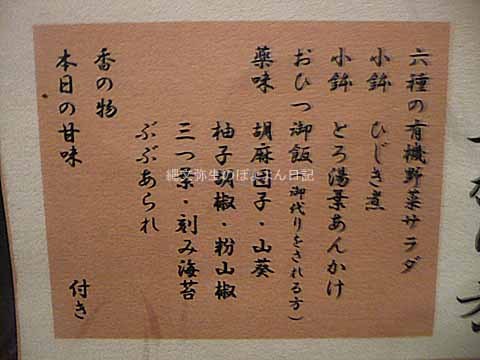 六種の有機野菜サラダ
小鉢　ひじき煮
小鉢　とろ湯葉あんかけ
おひつ御飯（御代りをされる方）
薬味　胡麻団子・山葵
柚子胡椒・粉山椒
三つ葉・刻み海苔
ぶぶあられ
香の物
本日の甘味
付き